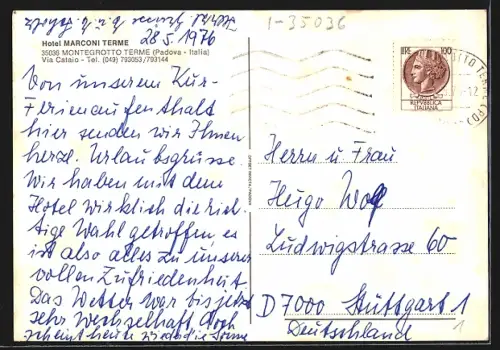 1-35036
28.5.1976
Hotel MARCONI TERME
35036 MONTEGROTTO TERME (Padova - Italia)
Via Cataio - Tel. (049) 793053/793144
Von unserem Kur-
Ferienaufenthalt
hier senden wir Ihnen
herzl. Urlaubsgrüsse.
Wir haben mit dem
Hotel wirklich die rich-
tige Wahl getroffen, es
ist also alles zu unserer
vollen Zufriedenheit.
Das Wetter war bis jetzt
sehr wechselhaft, doch
scheint heute wieder die Sonne
LIRE 100
REPVBBLICA
ITALIANA
OTTO TERME (PD)
Herrn u Frau
Hugo
Ludwigstrasse 60
D 7000 Stuttgart 1
Deutschland
1